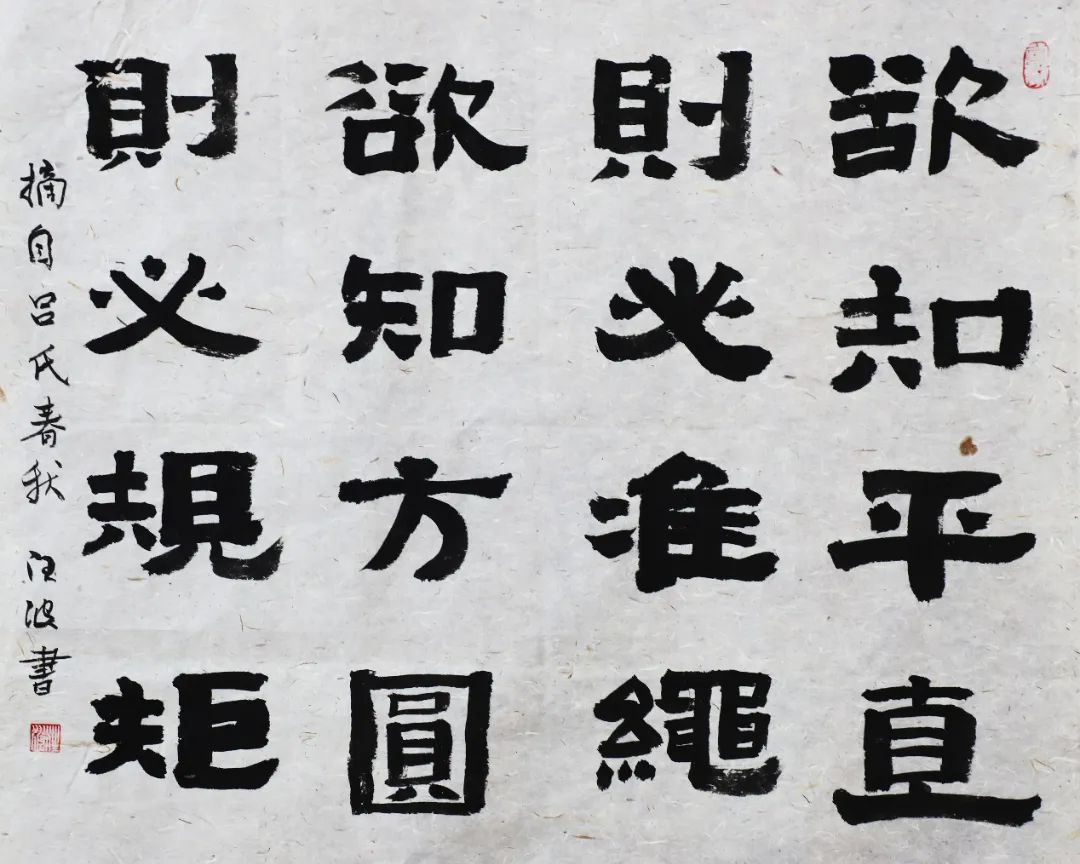 欲知平直
則必准繩
欲知方圓
則必規矩
摘自吕氏春秋 汪波書